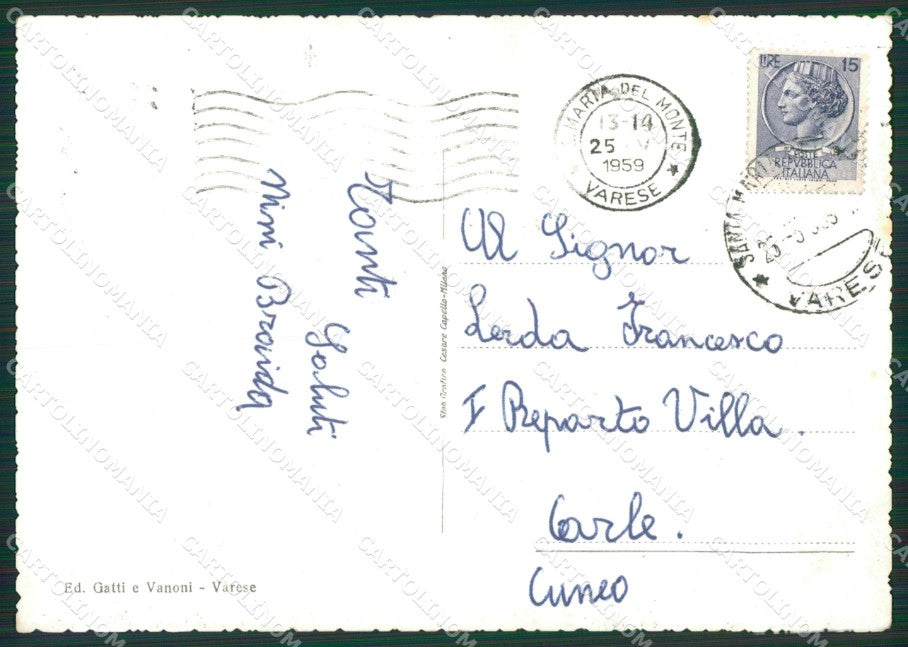 LIRE 15
POSTE
REPVBBLICA
ITALIANA
MARIA DEL MONTE
13-14
25 V
1959
* VARESE *
* SANTA MARI
25-5
VARESE
Tanti Saluti
Mimi Braida
Al Signor
Lerda Francesco
I Reparto Villa.
Carle.
Cuneo
Stab. Grafico Cesare Capello-Milano
Ed. Gatti e Vanoni - Varese
CARTOLINOMANIA